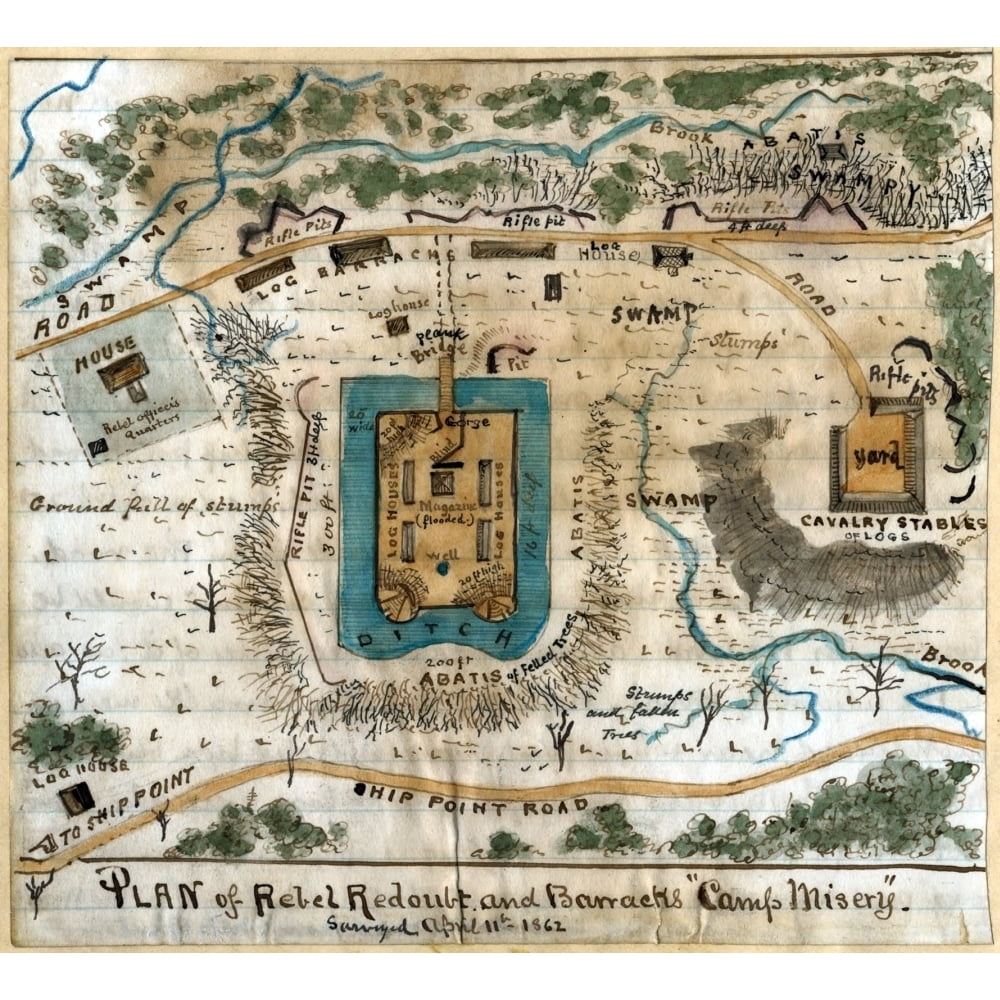 Brook
ABATIS
SWAMPY
Rifle Pits
Rifle pit
Rifle Pit
4 ft deep
SWAMP
ROAD
LOG BARRACKS
LOG
HOUSE
ROAD
Log house
SWAMP
Stumps
plank
Bridge
Pit
HOUSE
Rebel officers
Quarters
Rifle
pits
Gorge
Blind
yard
Magazine
(flooded.)
LOG HOUSES
LOG HOUSES
Well
20 ft high
16 ft deep
RIFLE PIT 3 ft deep
300 ft.
ABATIS
Ground full of stumps
SWAMP
CAVALRY STABLES
OF LOGS
DITCH
200 ft
ABATIS of Felled Trees
Brook
Stumps
and fallen
Trees
LOG HOUSE
TO SHIP POINT
SHIP POINT ROAD
PLAN of Rebel Redoubt, and Barracks "Camp Misery".
Surveyed April 11th 1862